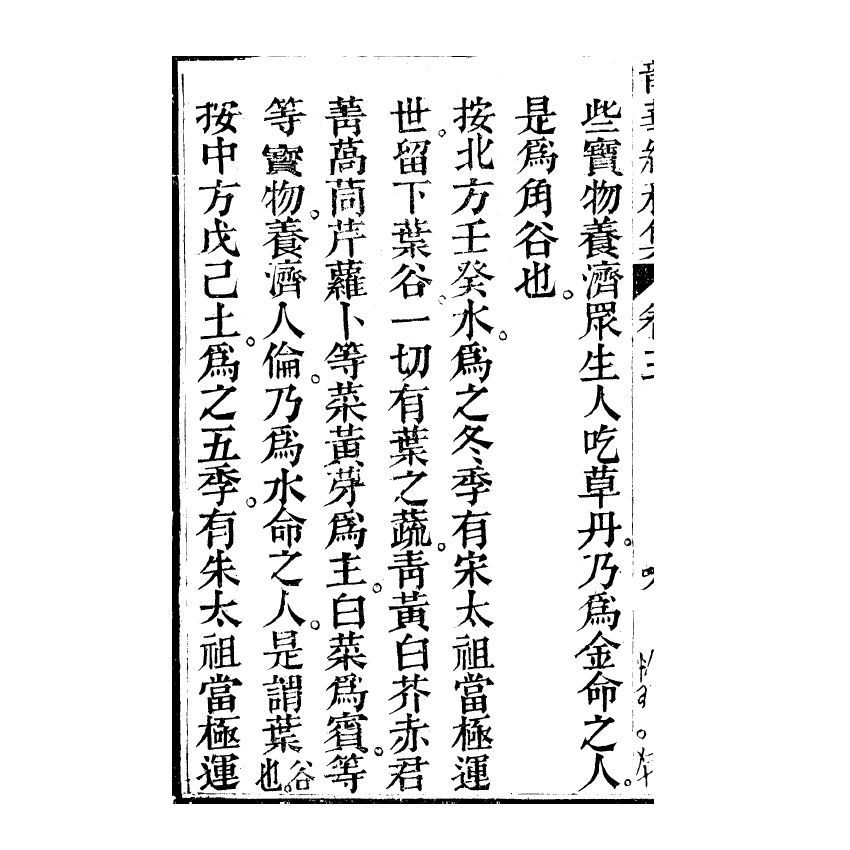 些寳物養濟眾生人吃草丹。乃爲金命之人。
是爲角谷也。
按北方壬癸水。爲之冬季有宋太祖當極運
世。留下葉谷。一切有葉之蔬。靑黃白芥赤君
菁萵茼芹蘿卜等菜黃芽爲主。白菜爲賓。等
等寳物。養濟人倫。乃爲水命之人。是謂葉谷也。
按中方戊己土。爲之五季。有朱太祖當極運